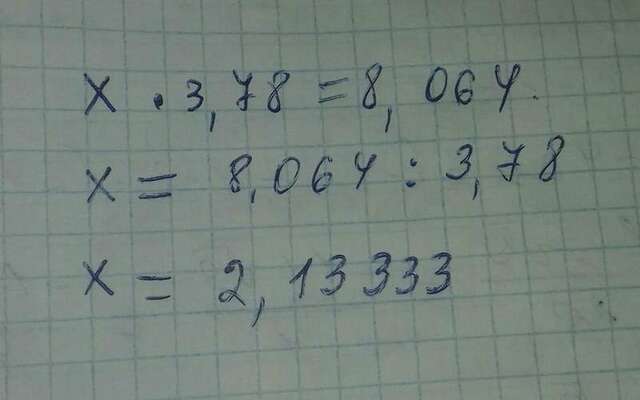 x · 3,78 = 8,064.
x = 8,064 : 3,78
x = 2,13333